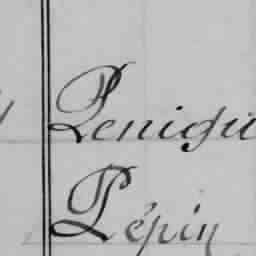 Penigu
Pépin